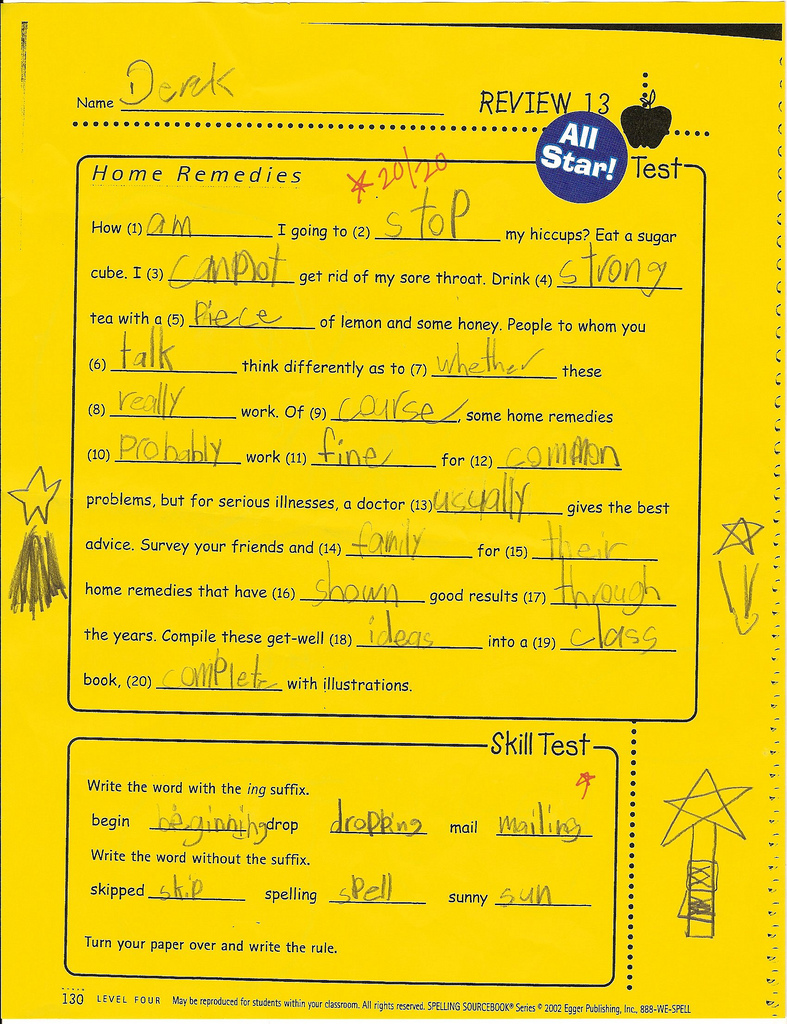 Name Derek
REVIEW 13
All
Star!
Test
Home Remedies
* 20/20
How (1) am I going to (2) stop my hiccups? Eat a sugar
cube. I (3) cannot get rid of my sore throat. Drink (4) strong
tea with a (5) Piece of lemon and some honey. People to whom you
(6) talk think differently as to (7) whether these
(8) really work. Of (9) course, some home remedies
(10) probably work (11) fine for (12) common
problems, but for serious illnesses, a doctor (13) usually gives the best
advice. Survey your friends and (14) family for (15) their
home remedies that have (16) shown good results (17) through
the years. Compile these get-well (18) ideas into a (19) class
book, (20) complete with illustrations.
Skill Test
Write the word with the ing suffix.
begin beginning drop dropping mail mailing
Write the word without the suffix.
skipped skip spelling spell sunny sun
Turn your paper over and write the rule.
130 LEVEL FOUR May be reproduced for students within your classroom. All rights reserved. SPELLING SOURCEBOOK® Series © 2002 Egger Publishing, Inc., 888-WE-SPELL